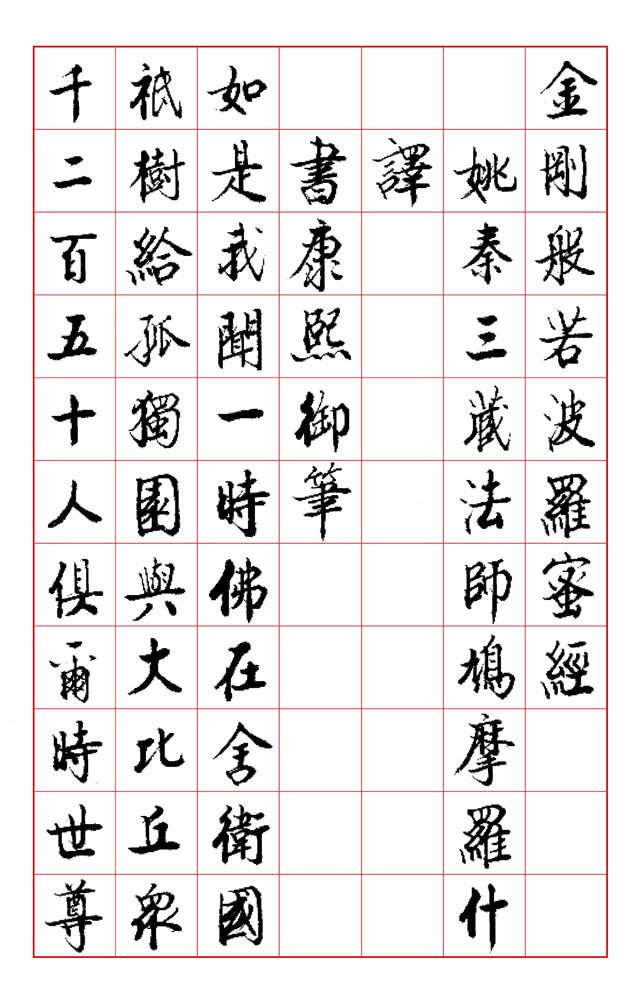 金剛般若波羅蜜經
姚秦三藏法師鳩摩羅什
譯
書康熙御筆
如是我聞一時佛在舍衛國
祇樹給孤獨園與大比丘眾
千二百五十人俱爾時世尊